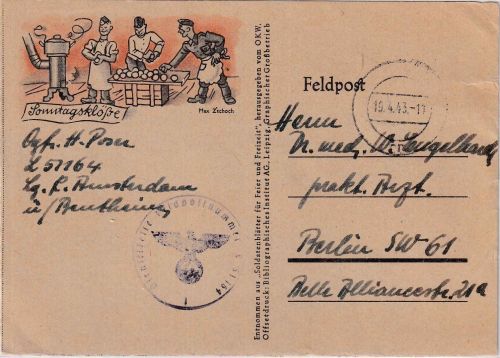 Sonntagsklöße
Max Zschoch
Ogfr. H. Poser
L 57164
Lg. P. Amsterdam
ü/Bentheim
Dienststelle Feldpostnummer L 57164
Entnommen aus „Soldatenblätter für Feier und Freizeit", herausgegeben vom OKW.
Offsetdruck: Bibliographisches Institut AG., Leipzig, Graphischer Großbetrieb
Feldpost
19.4.43.-17
Herrn
Dr. med. W. Engelhardt
prakt. Arzt.
Berlin SW 61
Belle Alliancestr. 21a